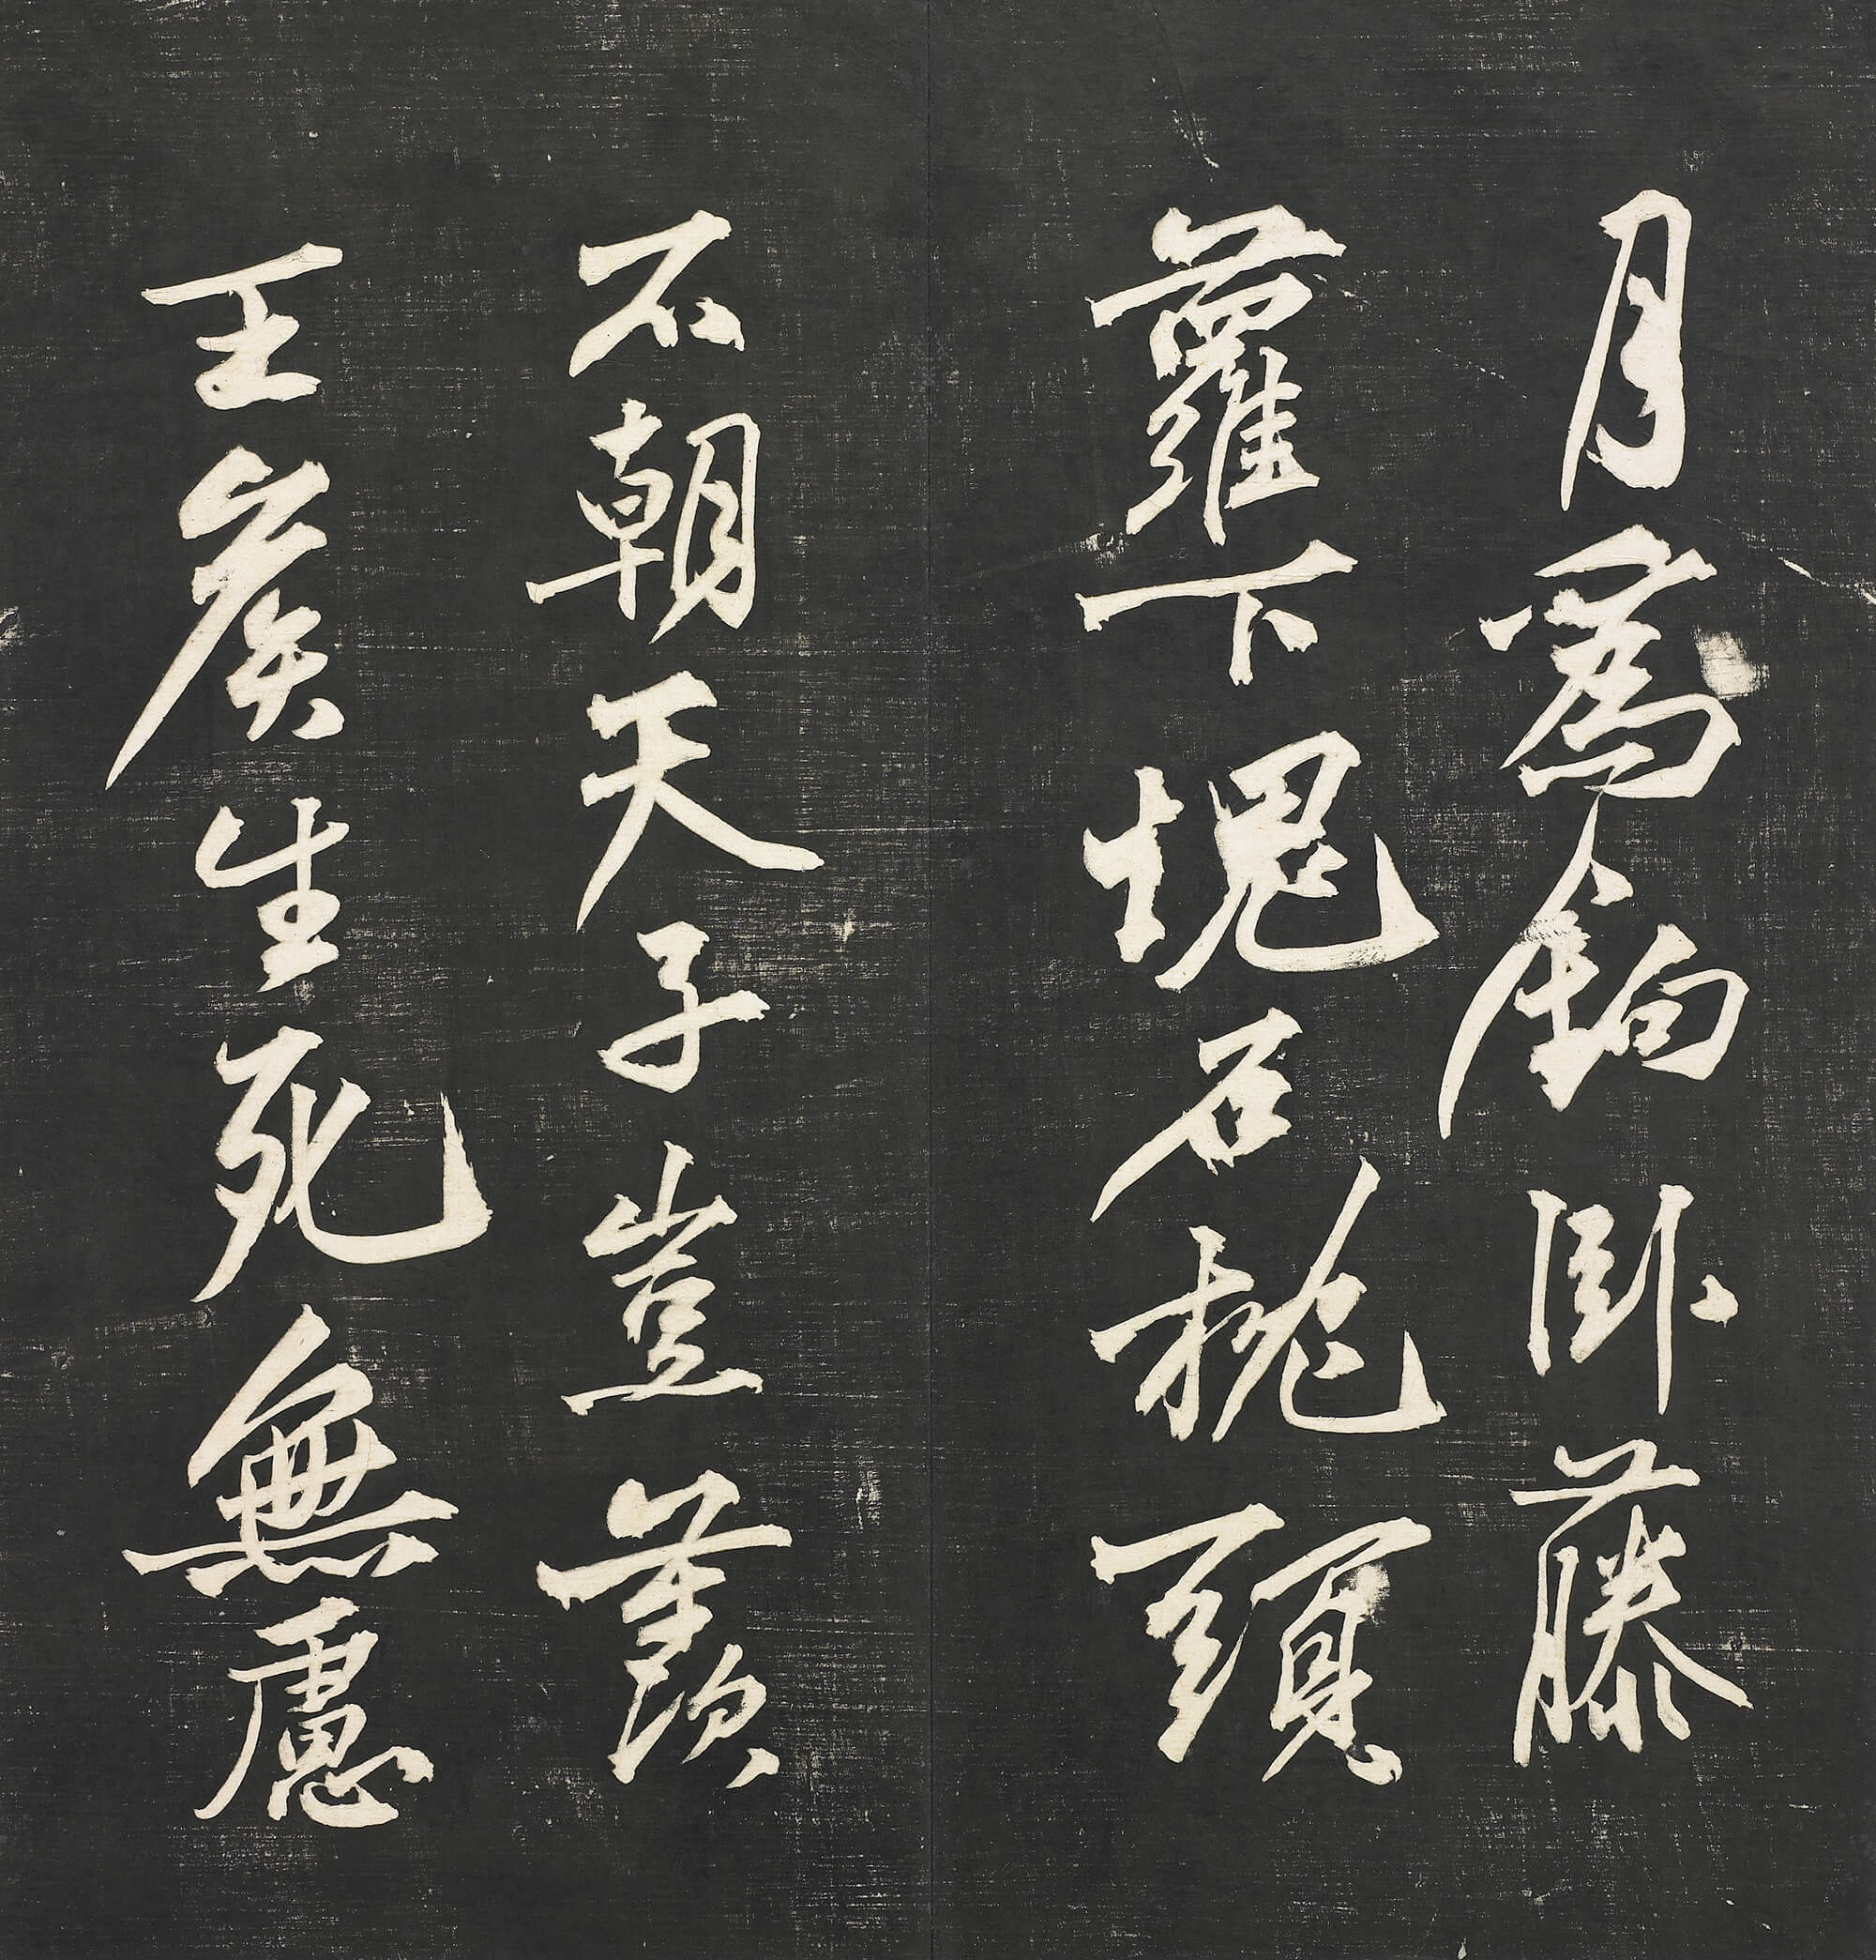 月爲鉤臥藤
蘿下塊石枕頭
不朝天子豈羨
王侯生死無慮